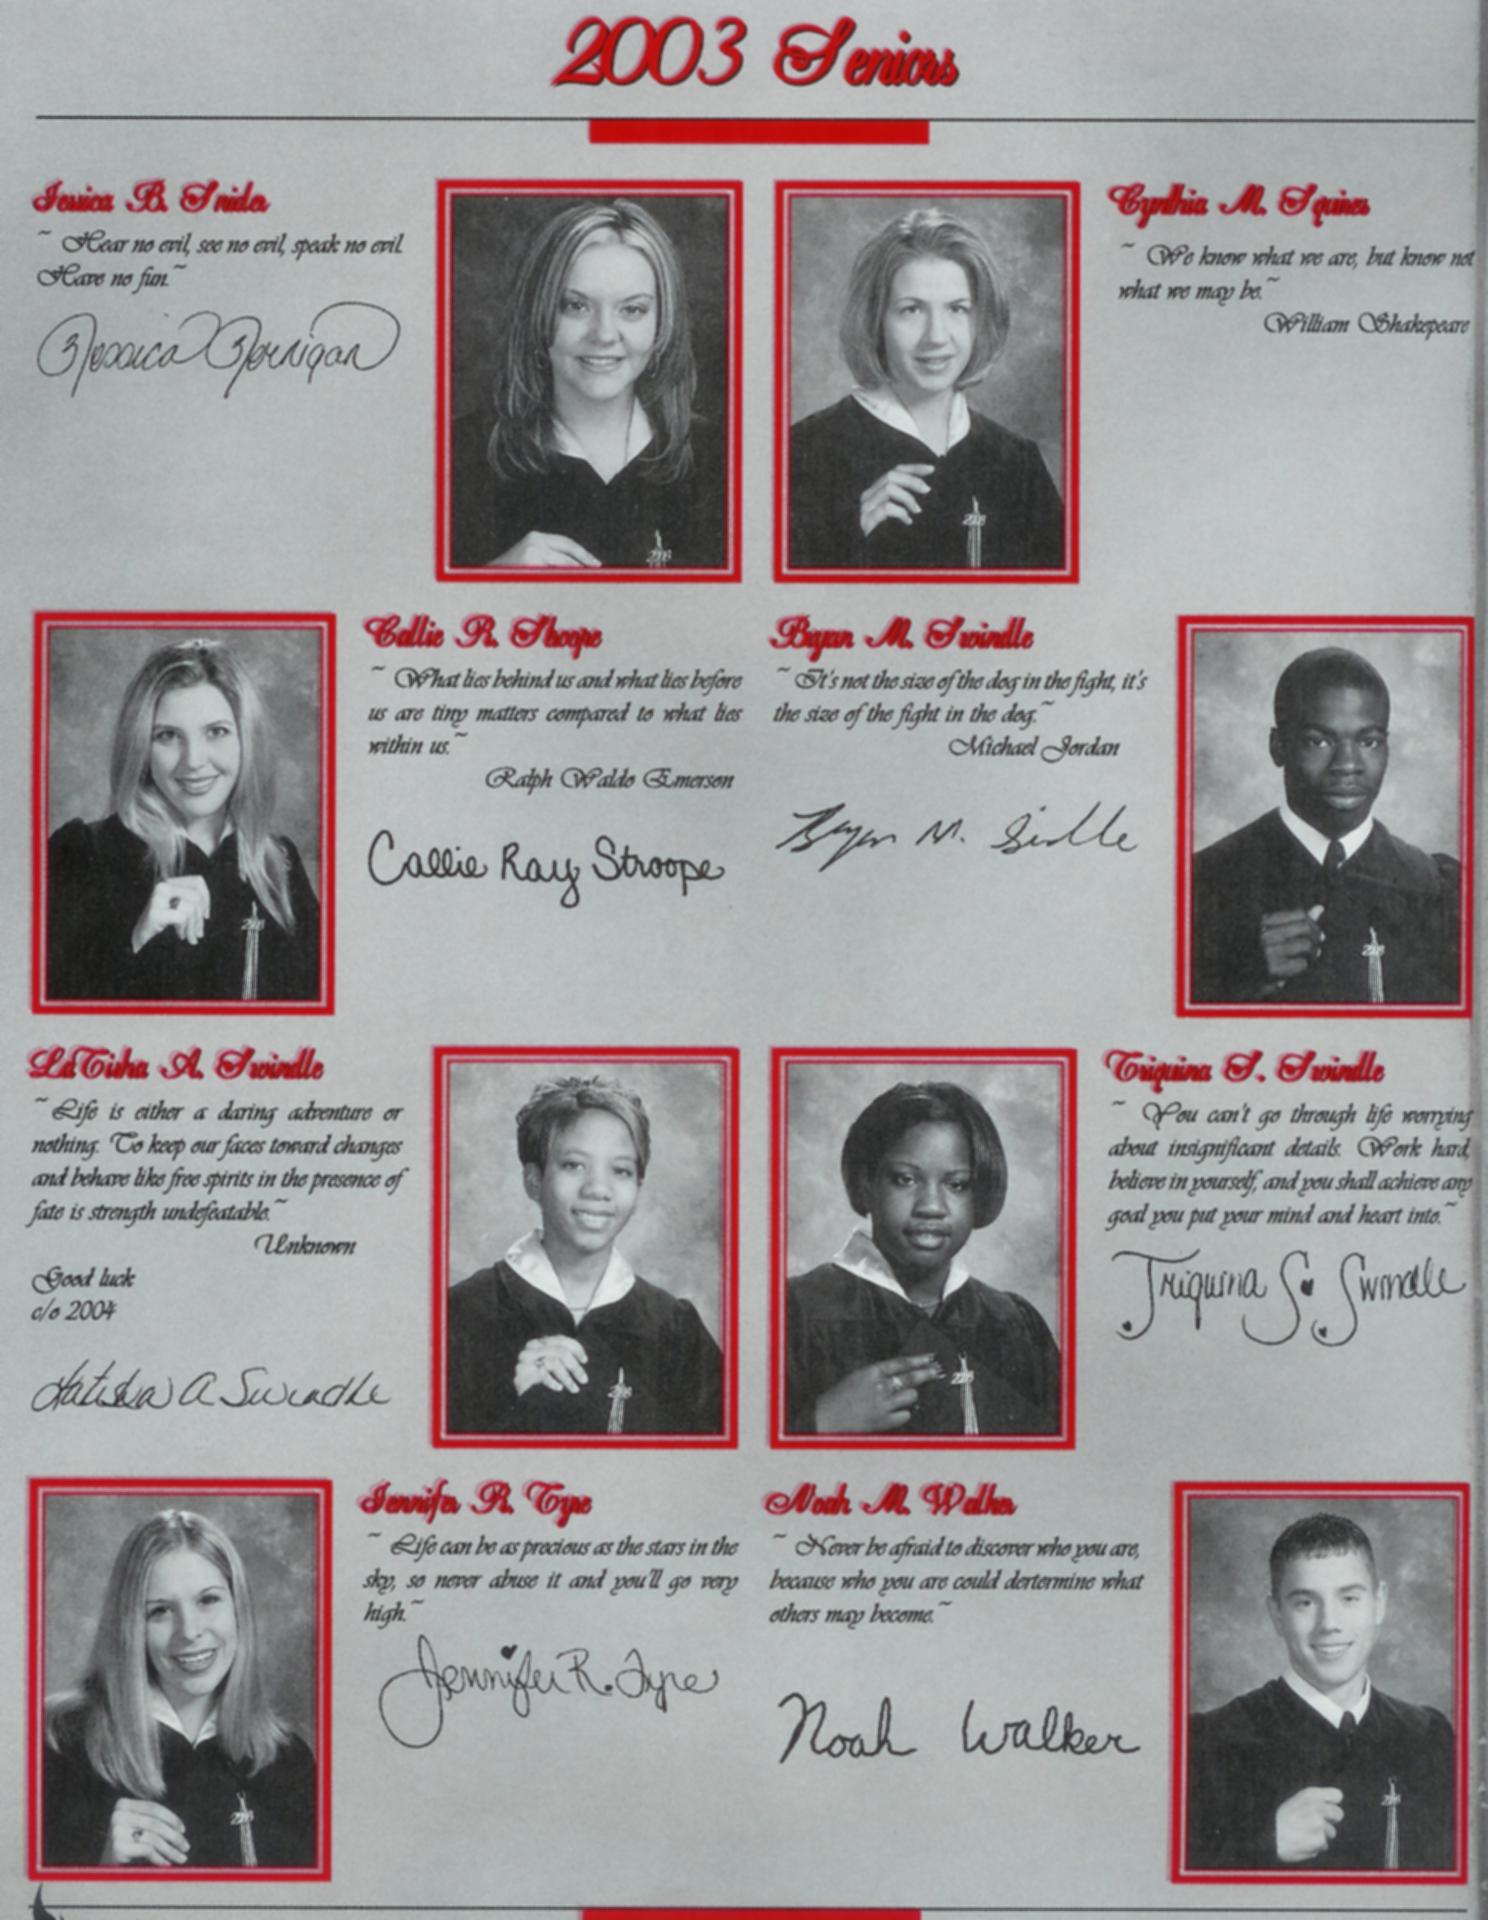 2003 Seniors
Jessica B. Snider
~ Hear no evil, see no evil, speak no evil.
Have no fun.~
Jessica
Cynthia M. Squires
~ We know what we are, but know not
what we may be.~
William Shakepeare
Callie R. Stroope
~ What lies behind us and what lies before
us are tiny matters compared to what lies
within us.~
Ralph Waldo Emerson
Callie Ray Stroope
Bryan M. Swindle
~ It's not the size of the dog in the fight, it's
the size of the fight in the dog.~
Michael Jordan
Bryan M. Swindle
LaTisha A. Swindle
~ Life is either a daring adventure or
nothing. To keep our faces toward changes
and behave like free spirits in the presence of
fate is strength undefeatable.~
Unknown
Good luck
c/o 2004
Latisha A Swindle
Triquina S. Swindle
~ You can't go through life worrying
about insignificant details. Work hard,
believe in yourself, and you shall achieve any
goal you put your mind and heart into.~
Triquina S. Swindle
Jennifer R. Tyre
~ Life can be as precious as the stars in the
sky, so never abuse it and you'll go very
high.~
Jennifer R. Tyre
Noah M. Walker
~ Never be afraid to discover who you are,
because who you are could dertermine what
others may become.~
Noah Walker